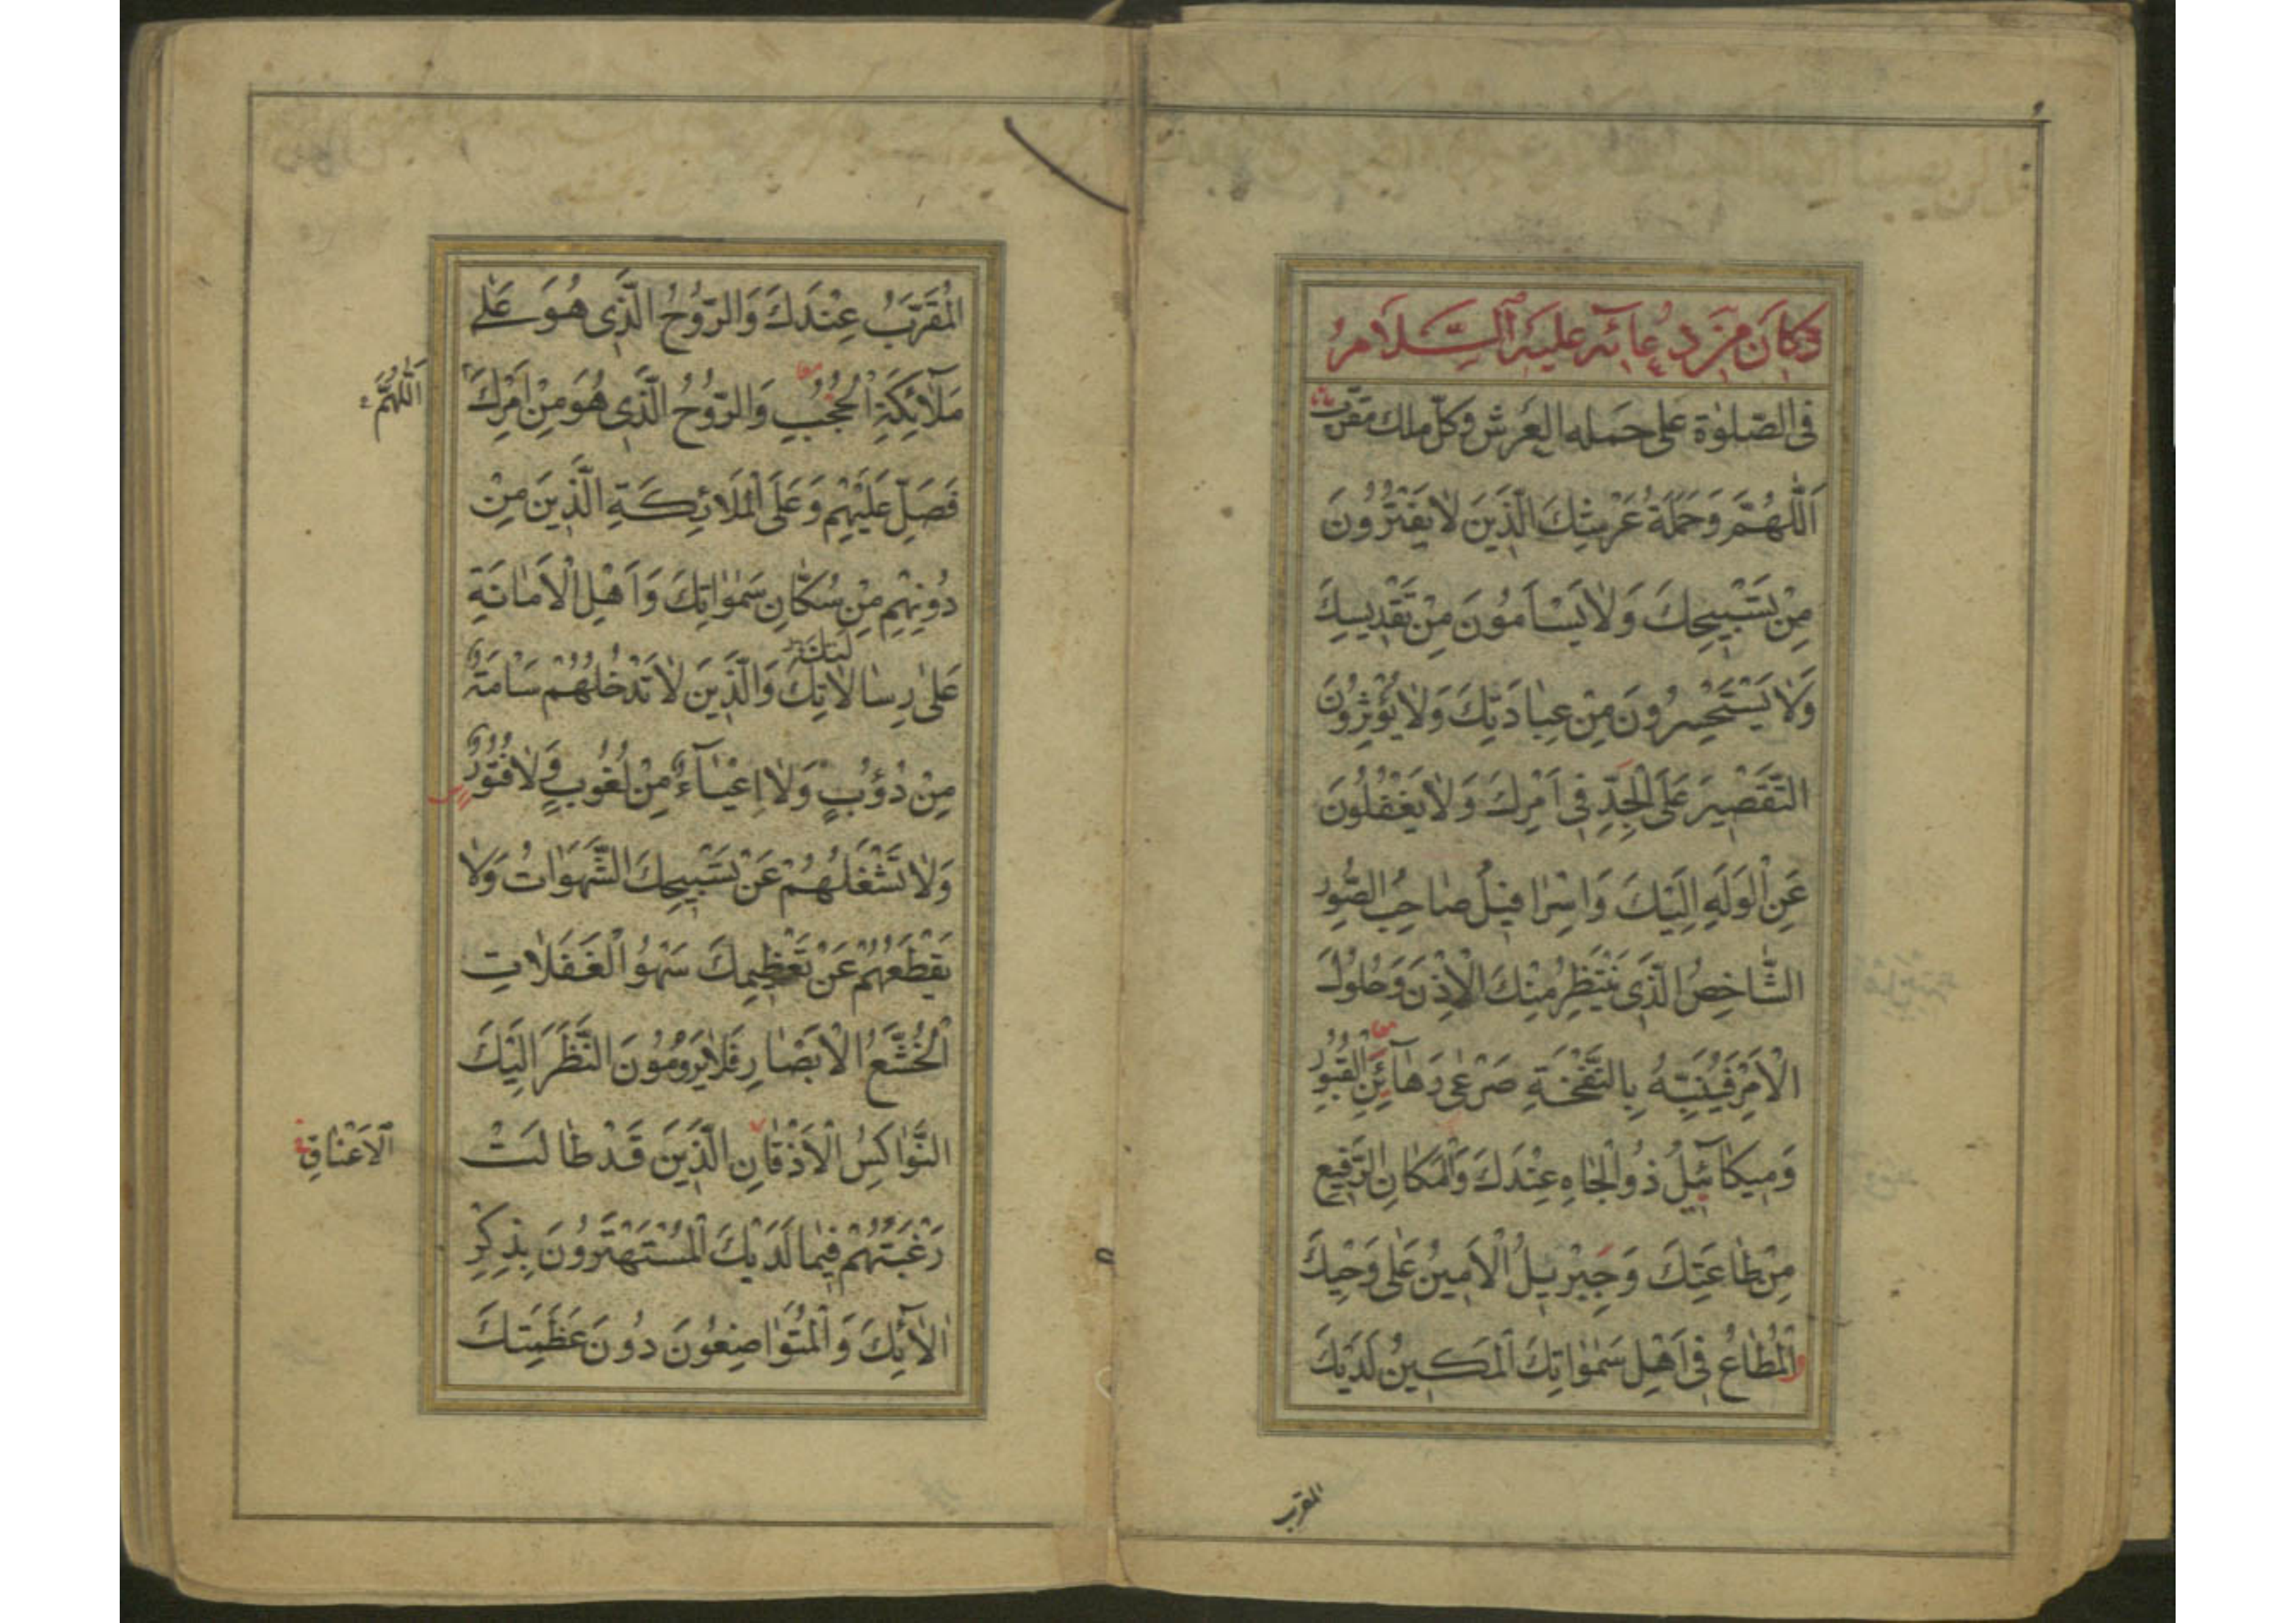 وَكَانَ مِنْ دُعَائِهِ عَلَيْهِ السَّلَامُ
فِى الصَّلوٰة عَلى حمله العَرش وكلّ ملك مقرّب
اَللّٰهُمَّ وَحَمَلَةُ عَرْشِكَ الَّذِينَ لَا يَفْتُرُونَ
مِنْ تَسْبِيحِكَ وَلَا يَسْاَمُونَ مِنْ تَقْدِيسِكَ
وَلَا يَسْتَحْسِرُونَ مِنْ عِبَادَتِكَ وَلَا يُؤْثِرُونَ
التَّقْصِيرَ عَلَى الْجِدِّ فِى اَمْرِكَ وَلَا يَغْفُلُونَ
عَنِ الْوَلَهِ اِلَيْكَ وَاِسْرَافِيلُ صَاحِبُ الصُّورِ
الشَّاخِصُ الَّذِى يَنْتَظِرُ مِنْكَ الْاِذْنَ وَحُلُولَ
الْاَمْرِ فَيُنَبِّهُ بِالنَّفْخَةِ صَرْعٰى رَهَآئِنِ الْقُبُورِ
وَمِيكَآئِيلُ ذُو الْجَاهِ عِنْدَكَ وَالْمَكَانِ الرَّفِيعِ
مِنْ طَاعَتِكَ وَجِبْرِيلُ الْاَمِينُ عَلٰى وَحْيِكَ
الْمُطَاعُ فِى اَهْلِ سَمٰوَاتِكَ الْمَكِينُ لَدَيْكَ
المقرب
الْمُقَرَّبُ عِنْدَكَ وَالرُّوحُ الَّذِى هُوَ عَلٰى
مَلَآئِكَةِ الْحُجُبِ وَالرُّوحُ الَّذِى هُوَ مِنْ اَمْرِكَ
اَللّٰهُمَّ
فَصَلِّ عَلَيْهِمْ وَعَلَى الْمَلَائِكَةِ الَّذِينَ مِنْ
دُونِهِمْ مِنْ سُكَّانِ سَمٰوَاتِكَ وَاَهْلِ الْاَمَانَةِ
عَلٰى رِسَالَاتِكَ وَالَّذِينَ لَا تَدْخُلُهُمْ سَامَةٌ
مِنْ دُؤُبٍ وَلَا اِعْيَآءٌ مِنْ لُغُوبٍ وَلَا فُتُورٌ
وَلَا تَشْغَلُهُمْ عَنْ تَسْبِيحِكَ الشَّهَوَاتُ وَلَا
يَقْطَعُهُمْ عَنْ تَعْظِيمِكَ سَهْوُ الْغَفَلَاتِ
الْخُشَّعُ الْاَبْصَارِ فَلَا يَرُومُونَ النَّظَرَ اِلَيْكَ
النَّوَاكِسُ الْاَذْقَانِ الَّذِينَ قَدْ طَالَتْ
الْاَعْنَاقِ
رَغْبَتُهُمْ فِيمَا لَدَيْكَ الْمُسْتَهْتَرُونَ بِذِكْرِ
اٰلَآئِكَ وَالْمُتَوَاضِعُونَ دُونَ عَظَمَتِكَ